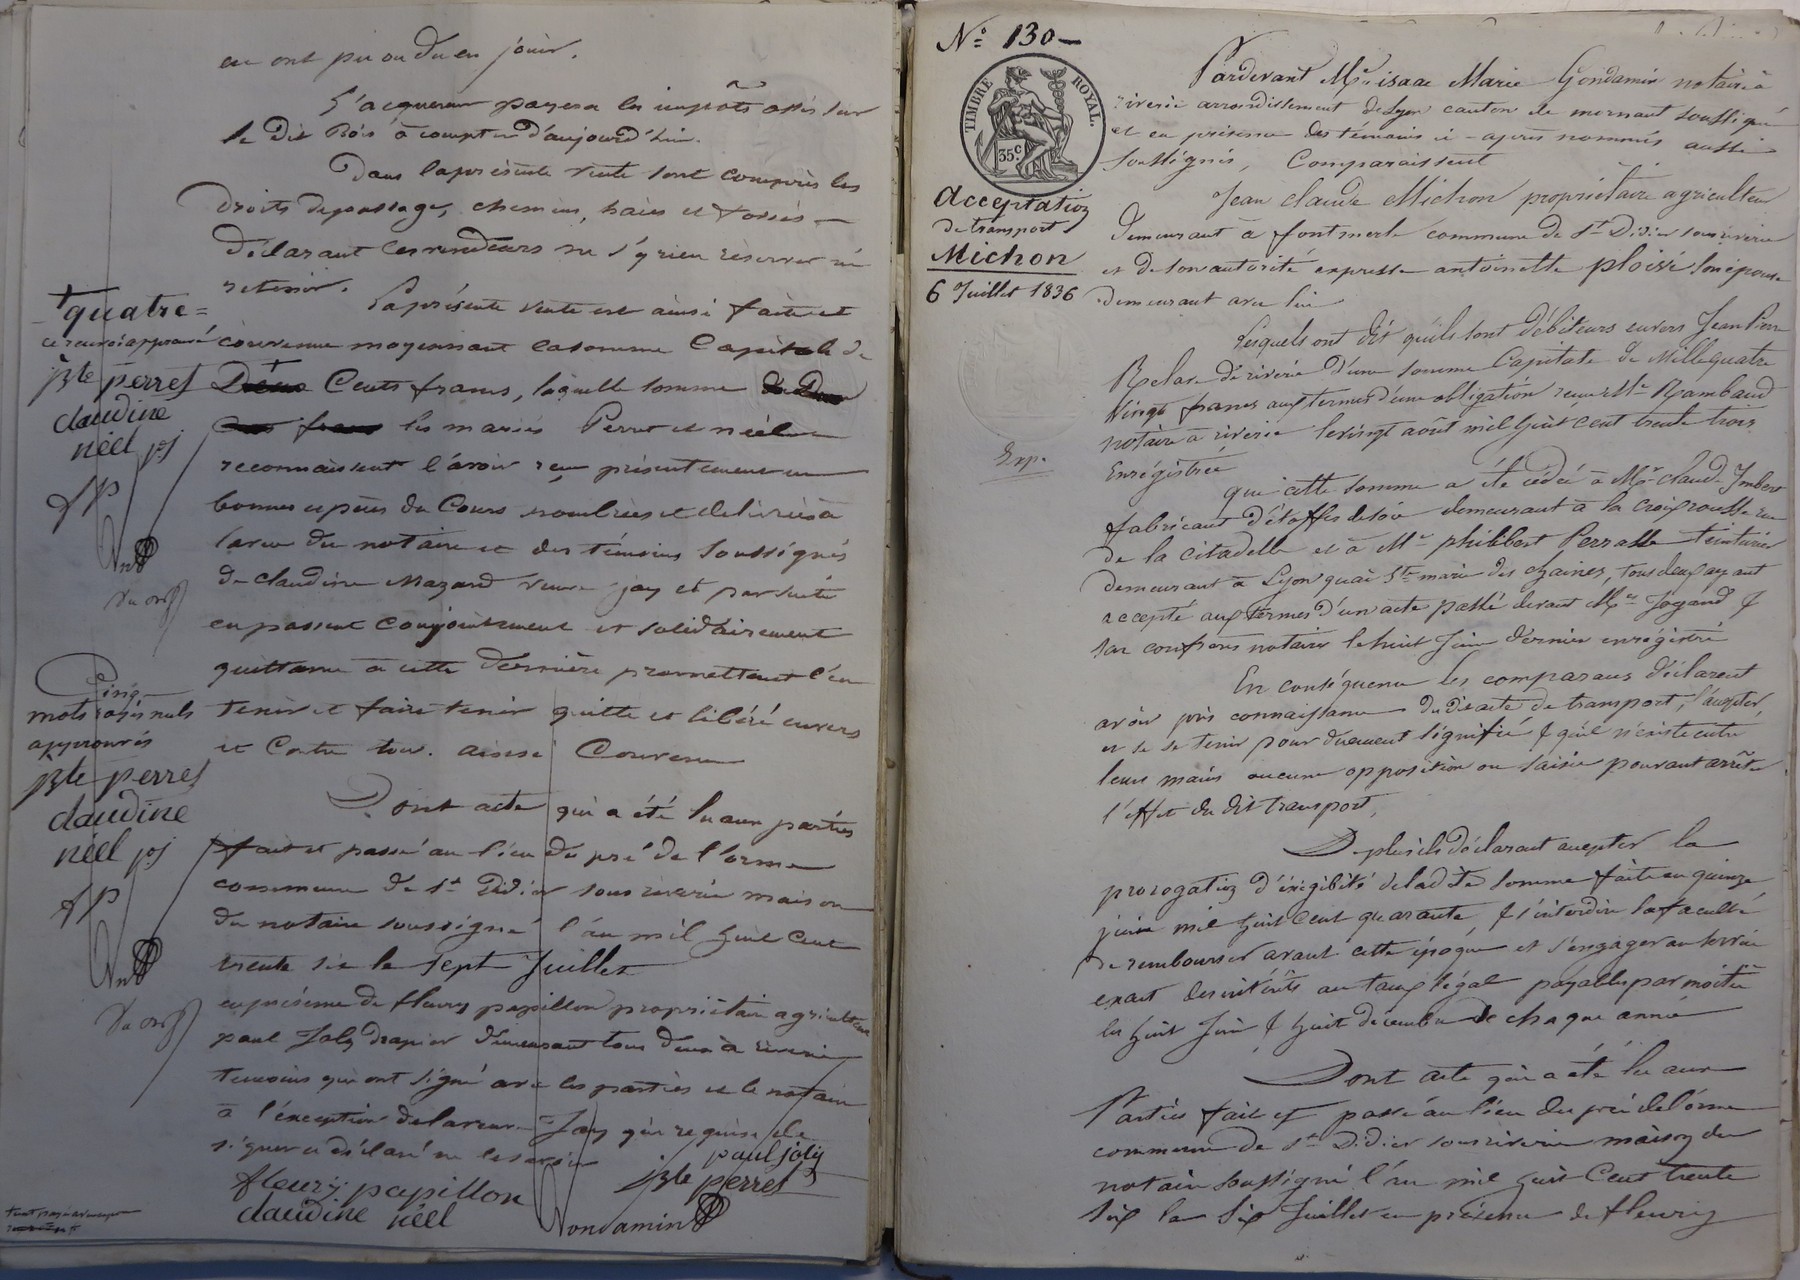 en ont pu ou du en jouir.
L'acquereur payera les impôts assis sur
le dit Bois à compter d'aujourd'hui.
Dans la présente vente sont compris les
droits de passage, chemins, haies et fossés
déclarant les vendeurs ne s'y rien réserver ni
retenir.
La présente vente est ainsi faite et
convenue moyennant la somme Capitale de
Cents francs, laquelle somme
les mariés Perret et néel
reconnaissent l'avoir reçu présentement en
bonnes espèces du Cours nombrées et délivrées à
la vue du notaire et des témoins soussignés
de claudine Mazard veuve jay et par suite
en passent conjointement et solidairement
quittance à cette dernière promettant l'en
tenir et faire tenir quitte et libéré envers
et Contre tous. ainsi Convenu
Dont acte qui a été lu aux parties
fait et passé au lieu du pré de l'orme
commune de St Didier sous riverie maison
du notaire soussigné l'an mil huit cent
trente six le sept Juillet
en présence de fleury papillon propriétaire agriculteur
paul Joly drapier demeurant tous deux à riverie
temoins qui ont signé avec les parties et le notaire
à l'exception de la veuve Jay qui requise de
signer a déclaré ne le savoir
paul joly
fleury papillon
jBte perret
claudine néel
Gondamin
+ quatre =
ce renvoi approuvé
jBte perret
claudine
néel pj
fP
Cinq
mots rayés nuls
approuvés
jBte perret
claudine
néel pj
fP
N° 130
TIMBRE ROYAL.
35 c.
Acceptation
de transport
Michon
6 Juillet 1836
Exp.
Pardevant Me isaac Marie Gondamin notaire à
riverie arrondissement de Lyon canton de mornant soussigné
et en présence des témoins ci-après nommés aussi
soussignés, Comparaissent
Jean claude Michon propriétaire agriculteur
demeurant à fontmerle commune de St Didier sous riverie
et de son autorité expresse antoinette ploivé son épouse
demeurant avec lui
Lesquels ont dit qu'ils sont débiteurs envers Jean Pierre
de riverie d'une somme Capitale de Mille quatre
Vingt francs aux termes d'une obligation reçue Me Rambaud
notaire à riverie le vingt août mil huit cent trente trois
Enregistrée
que cette somme a été cédée à Mr claude Imbert
fabricant d'étoffes de soie demeurant à la croix rousse rue
de la citadelle et à Mr philibert Perralle teinturier
demeurant à Lyon quai Ste marie des chaines, tous deux ayant
accepté aux termes d'un acte passé devant Me Jogand &
son confrère notaires le huit Juin dernier enregistré
En conséquence les comparans déclarent
avoir pris connaissance du dit acte de transport, l'accepter,
et se tenir pour duement signifié & qu'il n'existe entre
leurs mains aucune opposition ou saisie pouvant arrêter
l'effet du dit transport,
De plus ils déclarent accepter la
prorogation d'exigibilité de la dite somme faite au quinze
juin mil huit cent quarante, & s'interdire la faculté
de rembourser avant cette époque et s'engager au service
exact des intérêts au taux légal payables par moitié
les huit Juin & huit décembre de chaque année
Dont acte qui a été lu aux
Parties fait et passé au lieu du pré de l'orme
commune de St Didier sous riverie maison du
notaire soussigné l'an mil huit Cent trente
six le six Juillet en présence de fleury